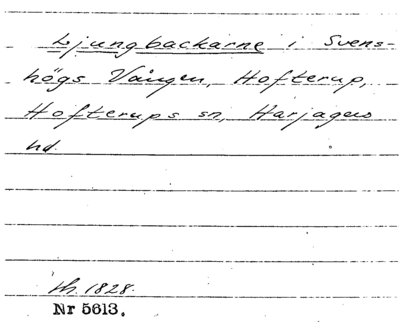 Ljungbackarne i Svens-
högs Vången, Hofterup,
Hofterups sn, Harjagers
hd.
th. 1828.
Nr 5613.